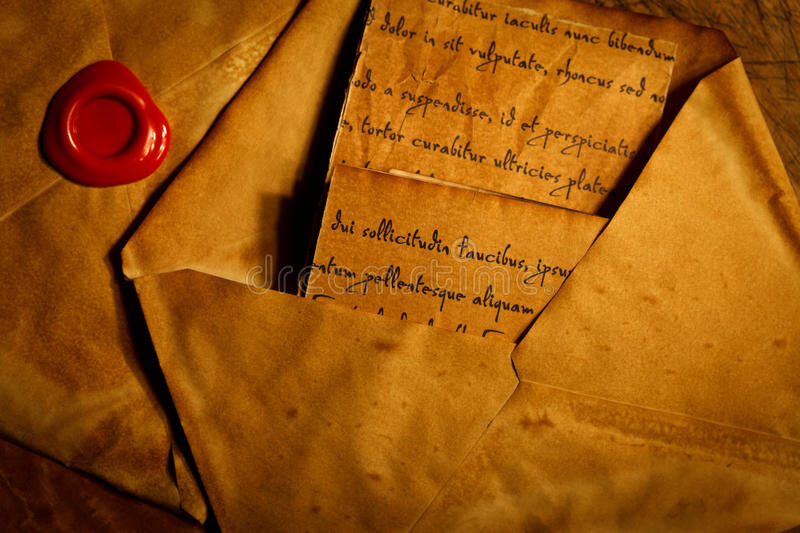 curabitur iaculis nunc bibendum
dolor in sit vulputate, rhoncus sed no
odo a suspendisse, id et perspiciatis
e, tortor curabitur ultricies plate
dui sollicitudin faucibus, ipsu
ntum pellentesque aliquam
dreamstime